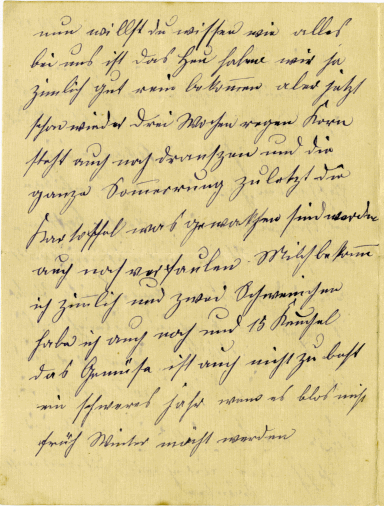 nun willst du wissen wie alles
bei uns ist das Heu haben wir ja
zimlich gut rein bekommen aber jetzt
schon wieder drei Wochen regen Korn
steht auch noch drautzen und die
ganze Sommerrung zuletzt die
Kartoffel was gewaksen sind werden
auch noch verfaulen. Milch bekomm
ich zimlich und zwei Schweinchen
habe ich auch noch und 15
das Gemüse ist auch nicht zu best
ein schweres jahr wenn es blos nicht
früh Winter mächt werden